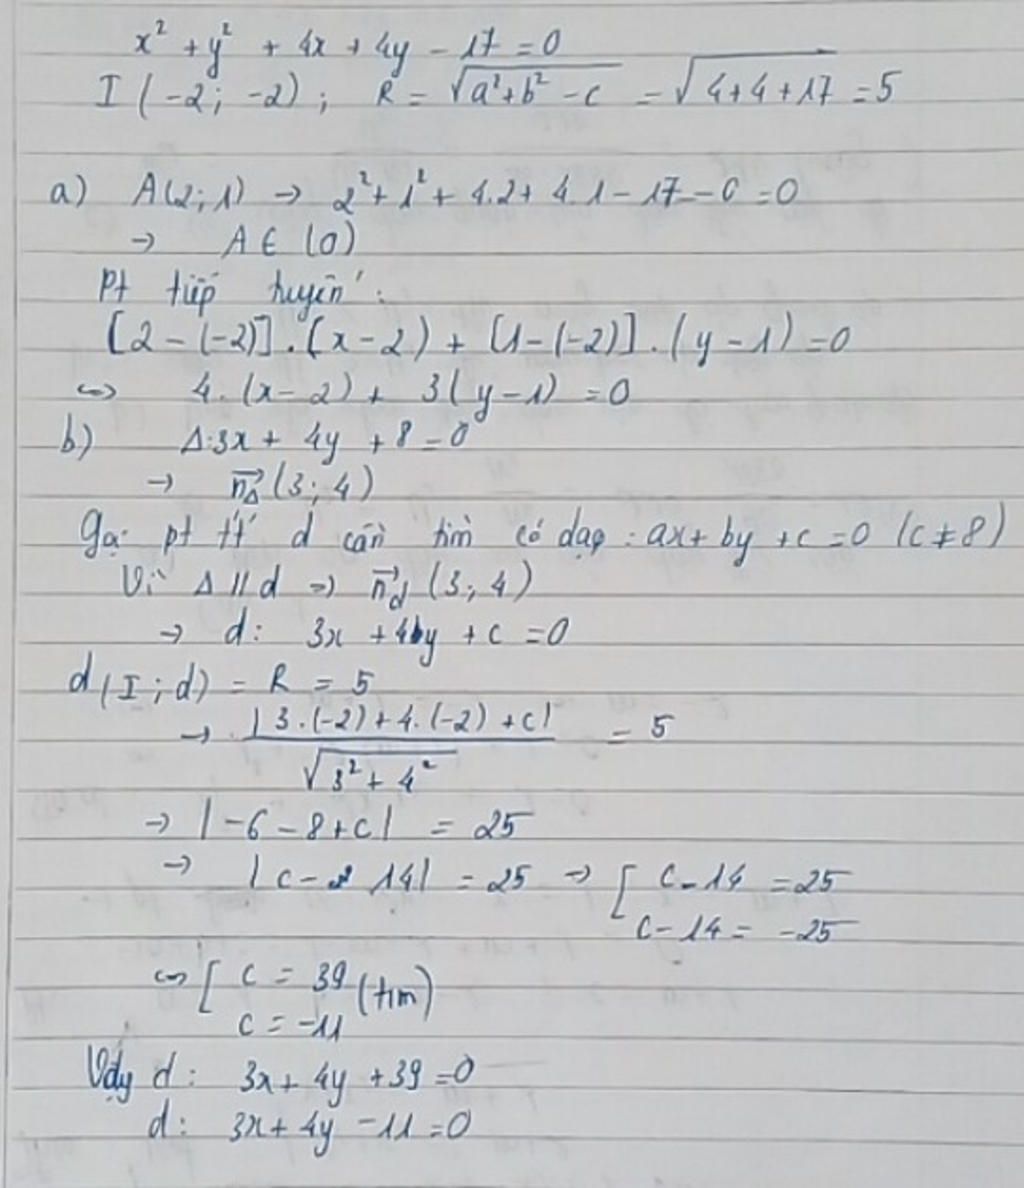 x² + y² + 4x + 4y - 17 = 0
I (-2; -2); R = √(a²+b²-c) = √(4+4+17) = 5
a) A(2; 1) → 2² + 1² + 4.2 + 4.1 - 17 = 0 = 0
→ A ∈ (O)
Pt tiếp tuyến:
[2 - (-2)].(x-2) + [1-(-2)].(y-1) = 0
⇔ 4.(x-2) + 3(y-1) = 0
b) Δ:3x + 4y + 8 = 0
→ n⃗Δ (3; 4)
Gọi pt tt d cần tìm có dạng: ax + by + c = 0 (c ≠ 8)
Vì Δ // d → n⃗d (3; 4)
→ d: 3x + 4y + c = 0
d(I; d) = R = 5
→ |3.(-2) + 4.(-2) + c| / √(3² + 4²) = 5
→ |-6 - 8 + c| = 25
→ |c - 14| = 25 → [ c - 14 = 25
c - 14 = -25
⇔ [ c = 39 (tm)
c = -11
Vậy d: 3x + 4y + 39 = 0
d: 3x + 4y - 11 = 0